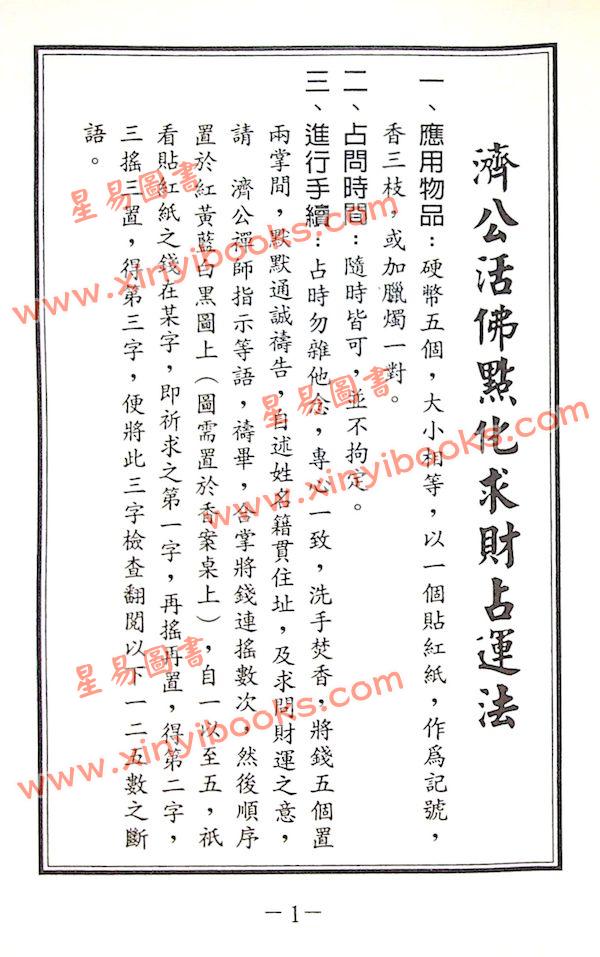 濟公活佛點化求財占運法
一、應用物品：硬幣五個，大小相等，以一個貼紅紙，作爲記號，
香三枝，或加臘燭一對。
二、占問時間：隨時皆可，並不拘定。
三、進行手續：占時勿雜他念，專心一致，洗手焚香，將錢五個置
兩掌間，默默通誠禱告，自述姓名籍貫住址，及求問財運之意，
請　濟公禪師指示等語，禱畢，合掌將錢連搖數次，然後順序
置於紅黃藍白黑圖上（圖需置於香案桌上），自一以至五，祇
看貼紅紙之錢在某字，即祈求之第一字，再搖再置，得第二字，
三搖三置，得第三字，便將此三字檢查翻閱以下一二五數之斷
語。
星易圖書
www.xinyibooks.com
星易圖書
www.xinyibooks.com
星易圖書
www.xinyibooks.com
－1－